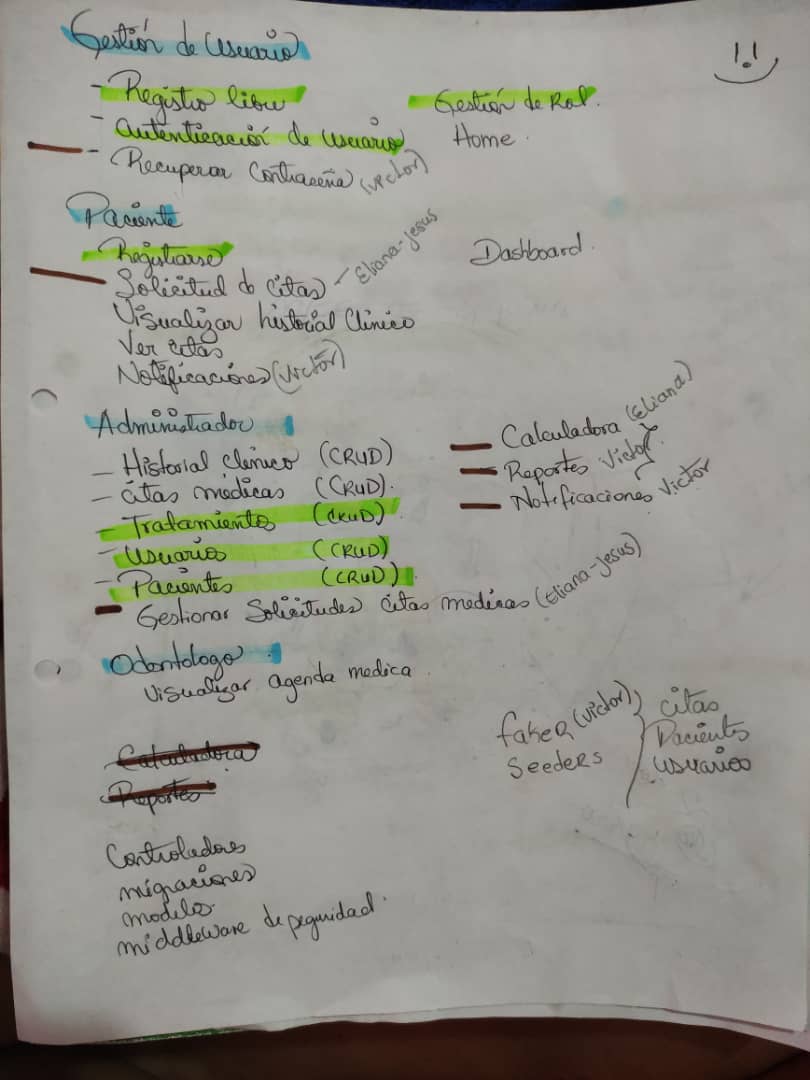 Gestión de Usuario
- Registro libre
Gestión de Rol.
- Autenticación de usuario
Home.
- Recuperar Contraceña (Victor)
Paciente
Registrarse
Dashboard.
Solicitud de Citas - Eliana-Jesus
Visualizar historial Clinico
Ver citas
Notificaciones (Victor)
Administrador
- Historial clinico (CRUD)
- Citas médicas (CRUD).
- Tratamientos (CRUD)
- Usuarios (CRUD)
- Pacientes (CRUD)
- Gestionar Solicitudes citas medicas (Eliana-Jesus)
- Calculadora (Eliana)
- Reportes Victor.
- Notificaciones Victor
Odontologo.
Visualizar agenda medica.
Calculadora
Reportes
faker (Victor)
Seeders
Citas
Pacientes
Usuarios
Controladores
migraciones
modelos.
middleware de seguridad.